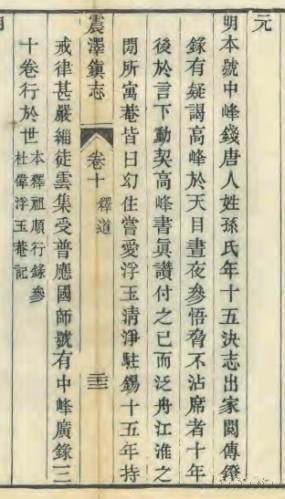 元
明本號中峰錢唐人姓孫氏年十五決志出家閱傳鐙
錄有疑謁高峰於天目晝夜參悟脅不沾席者十年
後於言下動契高峰書眞讚付之已而泛舟江淮之
震澤鎭志 卷十 釋道 三三
閒所寓菴皆曰幻住嘗愛浮玉清淨駐錫十五年持
戒律甚嚴緇徒雲集受普應國師號有中峰廣錄三
十卷行於世本釋祖順行錄參
杜偉浮玉菴記